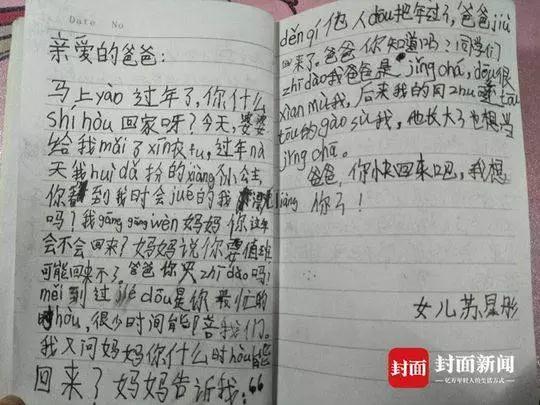 Date No
亲爱的爸爸:
马上yào过年了,你什么
shí hòu回家呀?今天,婆婆
给我mǎi了xīn衣fu,过年nà
天我huì dǎ扮的xiàng小公主
你看到我时会jué的我漂liàng
吗?我gāng gāng wèn妈妈你这年
会不会回来?妈妈说你要值班
可能回来不了。爸爸你 zhī dào吗?
měi到过jié dōu是你最忙的
时hòu,很少时间能陪我们。
我又问妈妈你什么时hòu能
回来了妈妈告诉我:“
děng 他人dōu把年过了,爸爸jiù
回来了。爸爸你知道吗?同学们
zhī dào我爸爸是jǐng chá,dōu很
xiàn mù我,后来我的同zhuō tōu
tōu的gào sù我,他长大了也想当
jǐng chá。
爸爸,你快回来吧,我想
你了!
女儿苏星彤
封面 封面新闻
亿万年轻人的生活方式